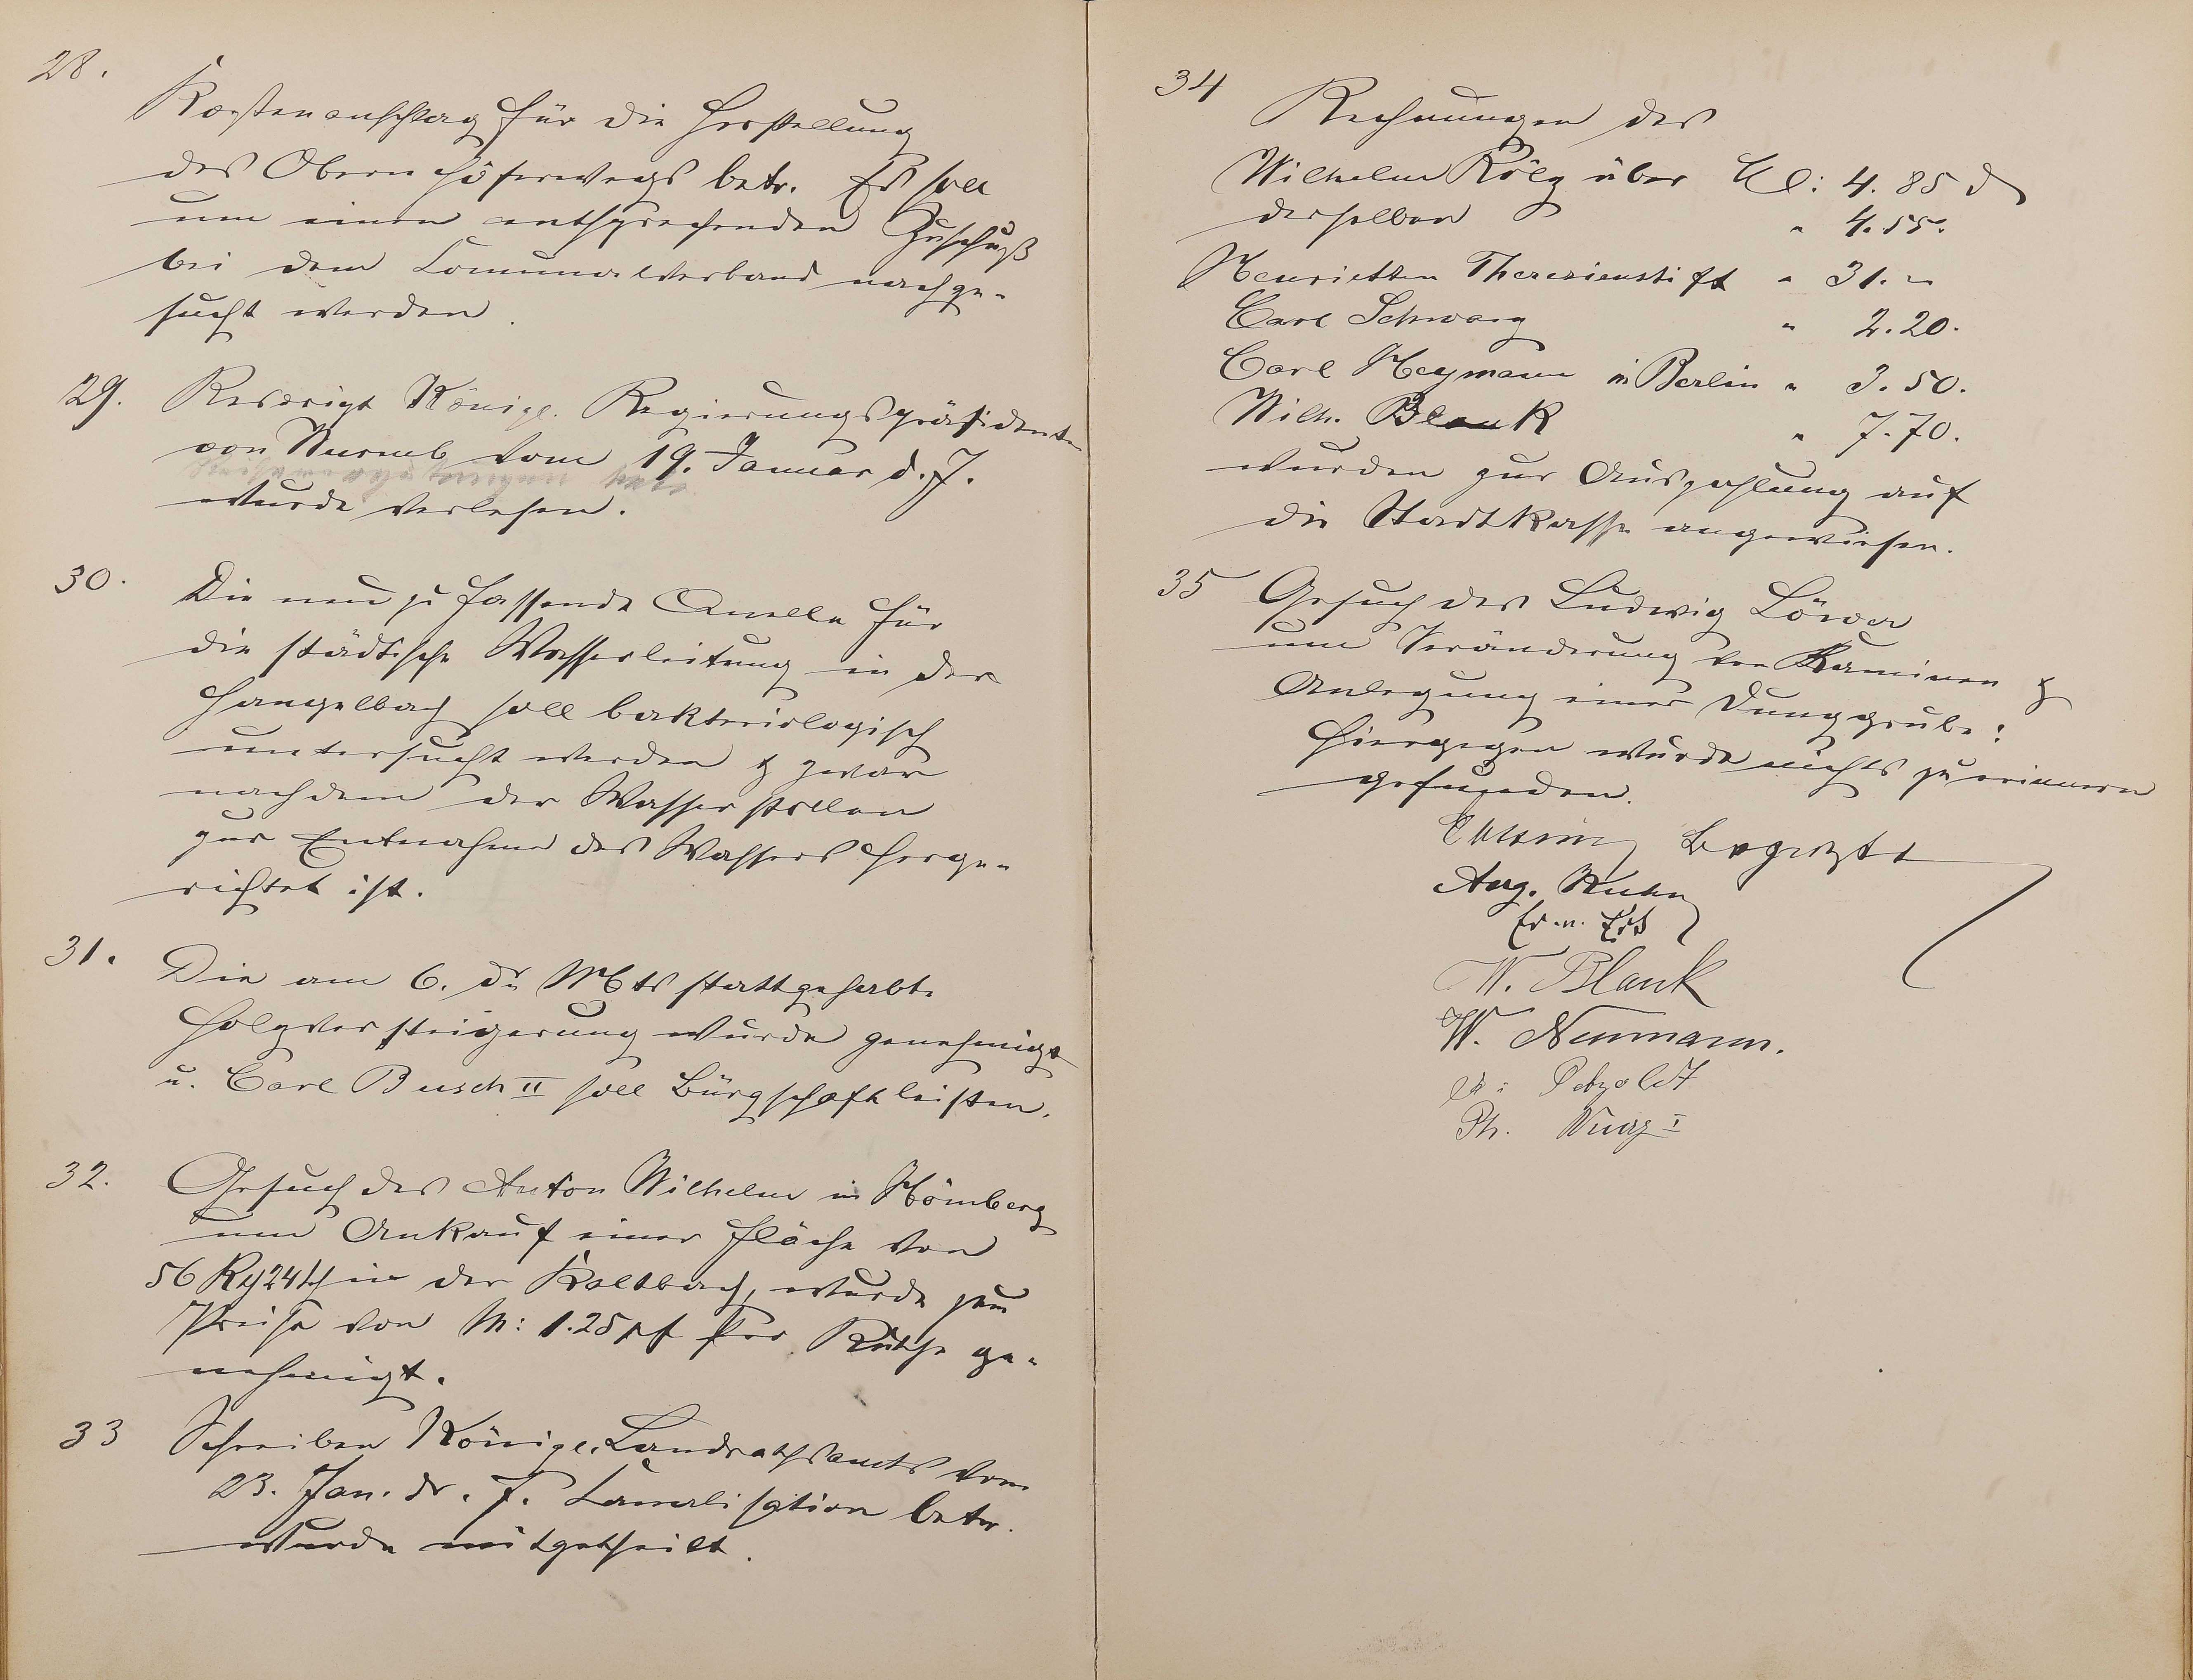 28.
Kostenanschlag für die Herstellung
des Obernhöferwegs betr. Es soll
um einen entsprechenden Zuschuß
bei dem Comunalverband nachge-
sucht werden.
29. Rescript Königl. Regierungspräsidenten
von Wurmb vom 19. Januar d. J.
wurde verlesen.
30. Die neu zu fassende Quelle für
die städtische Wasserleitung in der
Hangelbach soll bakteriologisch
untersucht werden & zwar
nachdem der Wasserstollen
zur Entnahme des Wassers herge-
richtet ist.
31. Die am 6. ds Mts stattgehabte
Holzversteigerung wurde genehmigt
u. Carl Busch II soll Bürgschaft leisten.
32. Gesuch des Anton Wilhelm in Hömberg
um Ankauf einer Fläche von
56 Rh 24 Sch in der Kaltbach, wurde zum
Preise von M: 1.25 pf pro Ruthe ge-
nehmigt.
33 Schreiben Königl. Landrathsamts vom
23. Jan. ds. J. Canalisation betr.
wurde mitgetheilt.
34
Rechnungen des
Wilhelm Kölz über M: 4. 85 d
derselben " 4.55.
Henrietten Theresienstift " 31. -
Carl Schwarz " 2.20.
Carl Heymann in Berlin " 3.50.
Wilh. Blank " 7.70.
wurden zur Auszahlung auf
die Stadtkasse angewiesen.
35 Gesuch des Ludwig Löwer
um Veränderung von Kaminen &
Anlegung einer Dunggrube:
Hiergegen wurde nichts zu erinnern
gefunden.
Aug. Kuhn
W. Blank
W. Neumann.
Petzoldt
Ph. Kurz I